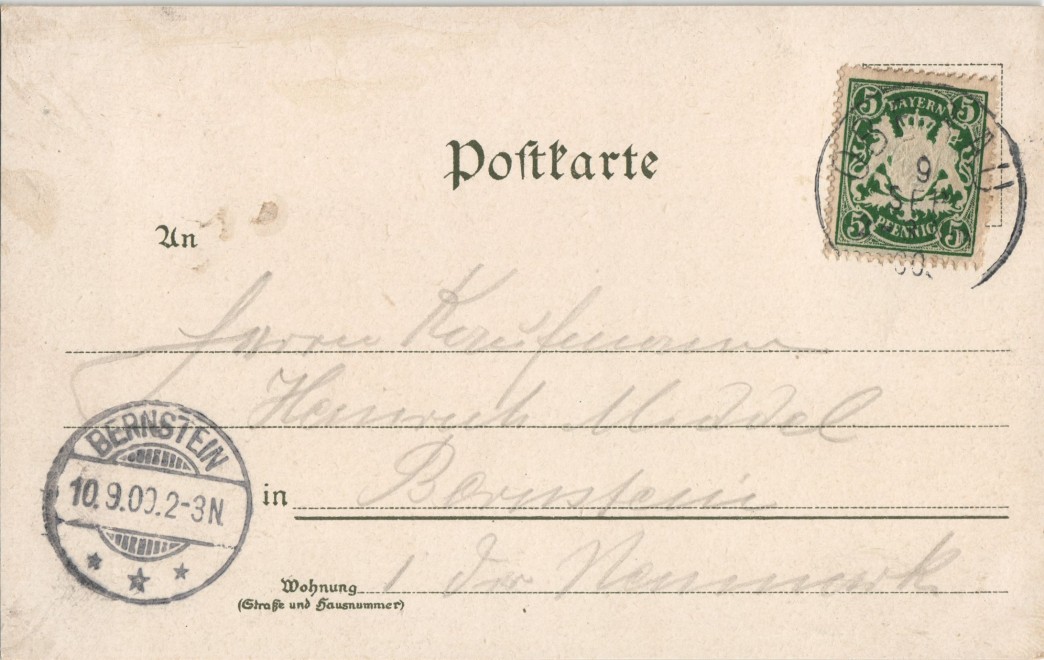 Postkarte
5 BAYERN 5
9
SEP
5 PFENNIG 5
00.
An
Herrn Kaufmann
Heinrich Middel
BERNSTEIN
10.9.00.2-3N.
in Bernstein
i der Neumark
Wohnung
(Straße und Hausnummer)